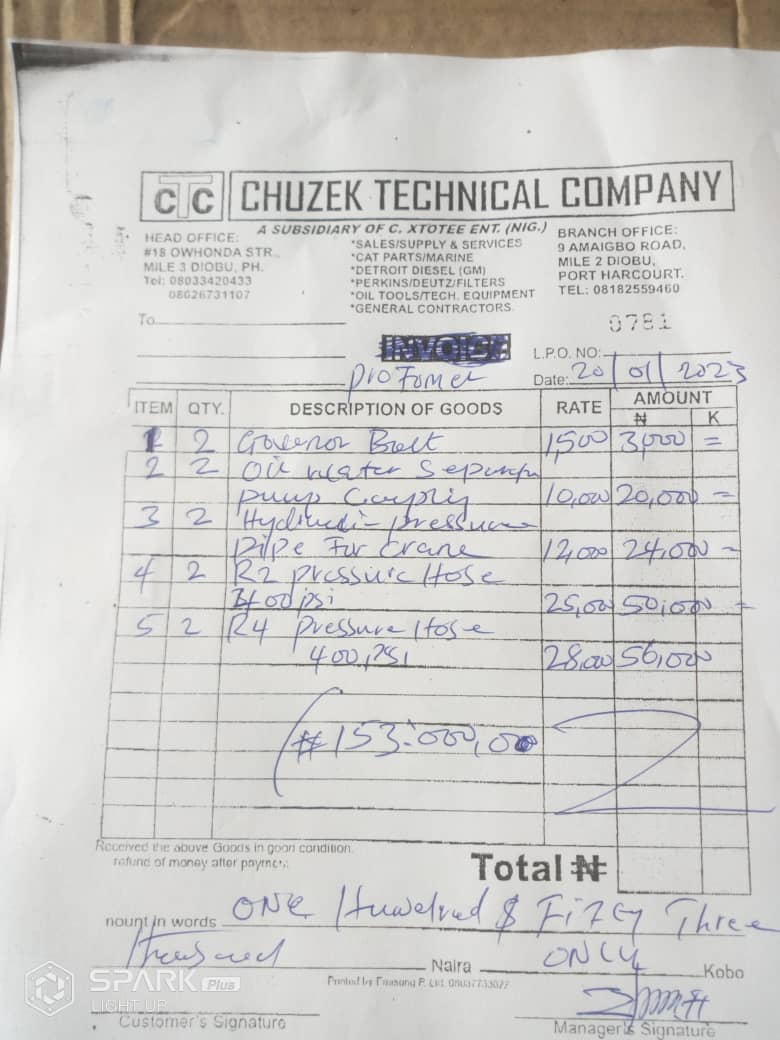 CTC CHUZEK TECHNICAL COMPANY
A SUBSIDIARY OF C. XTOTEE ENT. (NIG.)
HEAD OFFICE:
#18 OWHONDA STR.,
MILE 3 DIOBU, PH.
Tel: 08033420433
08026731107
*SALES/SUPPLY & SERVICES
*CAT PARTS/MARINE
*DETROIT DIESEL (GM)
*PERKINS/DEUTZ/FILTERS
*OIL TOOLS/TECH. EQUIPMENT
*GENERAL CONTRACTORS.
BRANCH OFFICE:
9 AMAIGBO ROAD,
MILE 2 DIOBU,
PORT HARCOURT.
TEL: 08182559460
0781
To
INVOICE
L.P.O. NO:
Date: 20/01/2023
ITEM QTY. DESCRIPTION OF GOODS RATE AMOUNT
₦ K
1 2 Governor Bolt 1,500 3,000 =
2 2 Oil water
pump 10,000 20,000 =
3 2 pressure
pipe For crane 12,000 24,000 =
4 2 R2 pressure Hose
psi 25,000 50,000 =
5 2 R4 pressure Hose
400 psi 28,000 56,000
₦153:000,00
Received the above Goods in good condition.
refund of money after payment.
Total ₦
nount in words ONE Hundred & Fifty Three
Thousand Naira ONLY Kobo
SPARK Plus
LIGHT UP
Customer's Signature
Manager's Signature